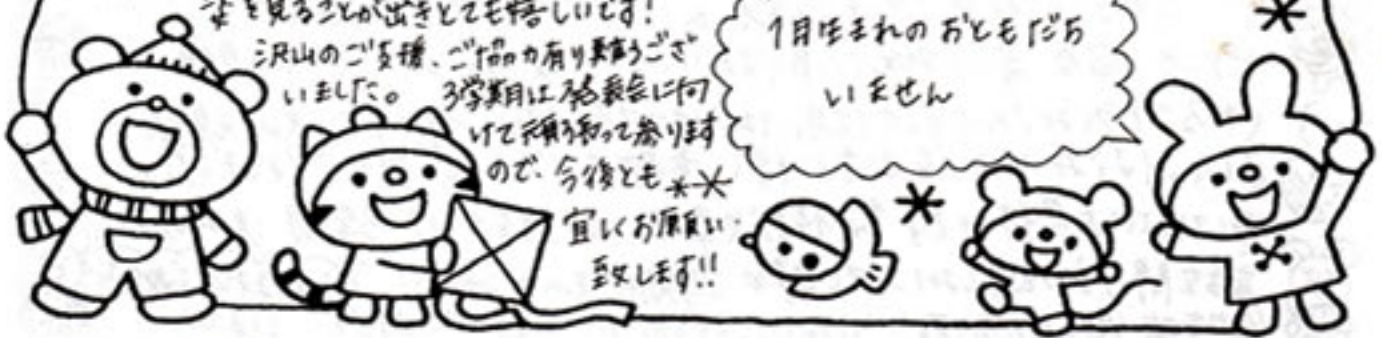 を見ることが出きとても嬉しいです!
沢山のご支援、ご協力有り難うござ
いました。 3学期は発表会に向
けて頑張って参ります
ので、今後とも
宜しくお願い
致します!!
1月生まれの おともだち
いません